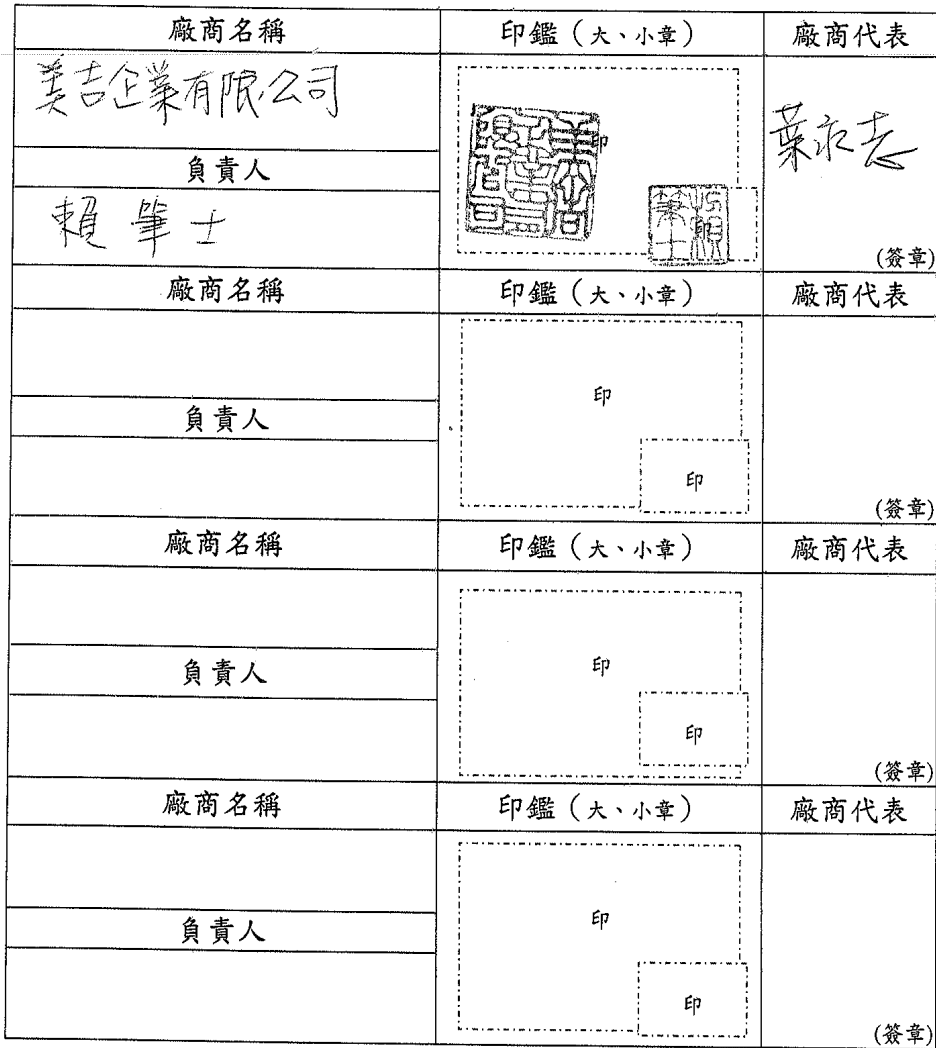 廠商名稱 印鑑（大、小章） 廠商代表
美吉企業有限公司
印
葉永志
負責人
賴筆士
(簽章)
廠商名稱 印鑑（大、小章） 廠商代表
印
負責人
印
(簽章)
廠商名稱 印鑑（大、小章） 廠商代表
印
負責人
印
(簽章)
廠商名稱 印鑑（大、小章） 廠商代表
印
負責人
印
(簽章)